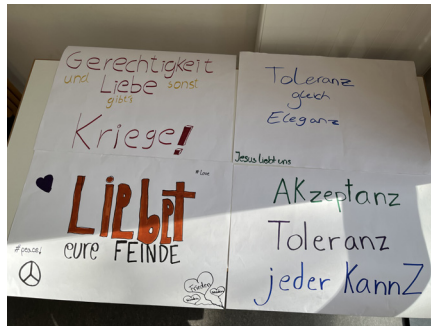 Gerechtigkeit
und Liebe sonst
gibt's
Kriege!
Toleranz
gleich
Eleganz
Jesus liebt uns
#love
Liebet
eure FEINDE
#peace!
Frieden
AKzeptanz
Toleranz
jeder KannZ